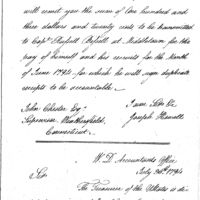 will remit you the sum of two hundred and
three dollars and twenty cents to be transmitted
to Capt. Russell Bissell at Middletown for the
pay of himself and his recruits for the Month
of June 1794 for which he will sign duplicate
receipts to be accountable.
I am Sir &c
John Chester Esqr.
Joseph Howell
Supervisor Weathersfield,
Connecticut.
W.D. Accountants Office
July 30th 1794
Sir
The Treasurer of the UStates is di-